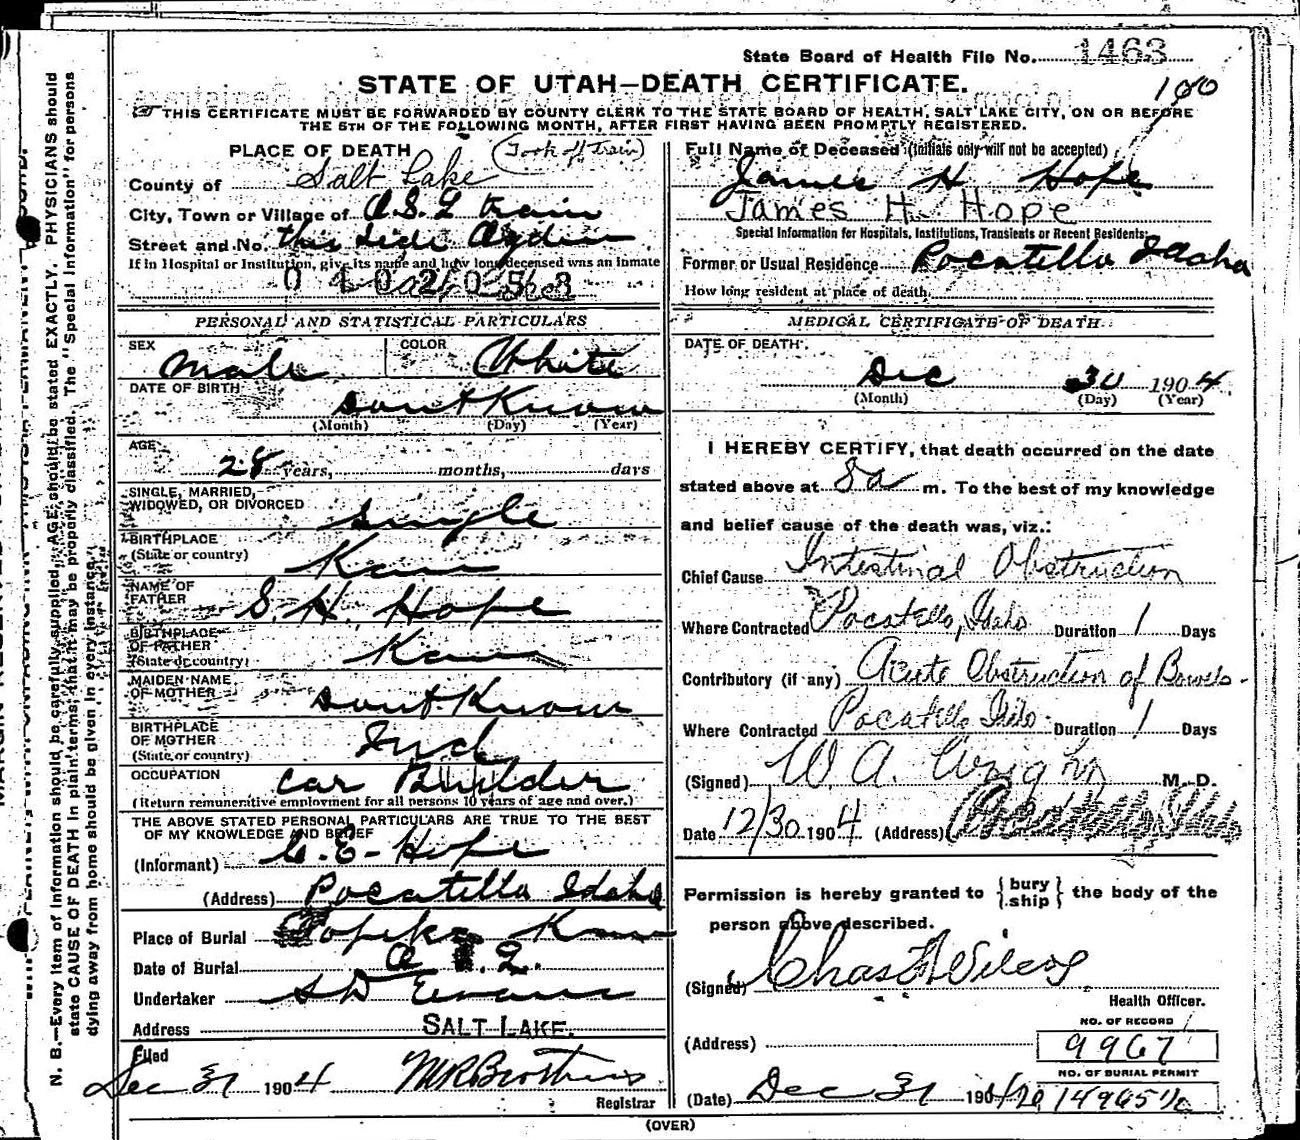 State Board of Health File No. 1463
STATE OF UTAH—DEATH CERTIFICATE.
100
THIS CERTIFICATE MUST BE FORWARDED BY COUNTY CLERK TO THE STATE BOARD OF HEALTH, SALT LAKE CITY, ON OR BEFORE
THE 5TH OF THE FOLLOWING MONTH, AFTER FIRST HAVING BEEN PROMPTLY REGISTERED.
PLACE OF DEATH (Took off train)
County of Salt Lake
City, Town or Village of O.S.L train
Street and No. this side Ogden
If in Hospital or Institution, give its name and how long deceased was an inmate
PERSONAL AND STATISTICAL PARTICULARS
SEX male COLOR White
DATE OF BIRTH
dont Know
(Month) (Day) (Year)
AGE
28 years, months, days
SINGLE, MARRIED,
WIDOWED, OR DIVORCED single
BIRTHPLACE
(State or country) Kans
NAME OF
FATHER S. H. Hope
BIRTHPLACE
OF FATHER
(State or country) Kans
MAIDEN NAME
OF MOTHER dont Know
BIRTHPLACE
OF MOTHER
(State or country) Ind
OCCUPATION car Builder
(Return remunerative employment for all persons 10 years of age and over.)
THE ABOVE STATED PERSONAL PARTICULARS ARE TRUE TO THE BEST
OF MY KNOWLEDGE AND BELIEF
(Informant) E. Hope
(Address) Pocatello Idaho
Place of Burial Topeka Kans
Date of Burial
Undertaker S D Evans
Address SALT LAKE.
Filed
Dec 31 1904 M R Brothers
Registrar
(OVER)
Full Name of Deceased (initials only will not be accepted)
James H Hope
James H. Hope
Special Information for Hospitals, Institutions, Transients or Recent Residents:
Former or Usual Residence Pocatello Idaho
How long resident at place of death
MEDICAL CERTIFICATE OF DEATH
DATE OF DEATH
Dec 30 1904
(Month) (Day) (Year)
I HEREBY CERTIFY, that death occurred on the date
stated above at 8 a m. To the best of my knowledge
and belief cause of the death was, viz.:
Chief Cause Intestinal Obstruction
Where Contracted Pocatello, Idaho Duration 1 Days
Contributory (if any) Acute Obstruction of Bowels.
Where Contracted Pocatello Idaho Duration 1 Days
(Signed) W A. Wright M. D.
Date 12/30 1904 (Address) Pocatello Idaho
Permission is hereby granted to {bury ship} the body of the
person above described.
(Signed) Chas Wilcox
Health Officer.
NO. OF RECORD
(Address) 9967
NO. OF BURIAL PERMIT
(Date) Dec 31 1904
N. B.—Every item of information should be carefully supplied. AGE should be stated EXACTLY. PHYSICIANS should
state CAUSE OF DEATH in plain terms, that it may be properly classified. The "Special Information" for persons
dying away from home should be given in every instance.